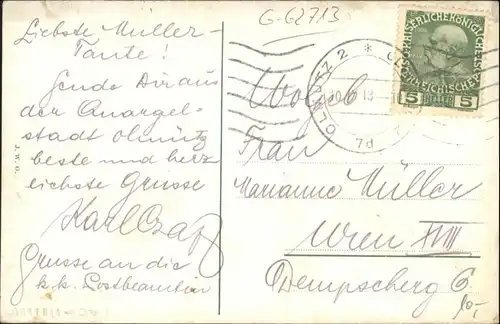 G-62713
Liebste Müller-
Tante!
Sende Dir aus
der Quargel-
stadt Olmütz
beste und herz
lichste Grüsse
Karl
Grüsse an die
k.k. Postbeamten
J.W.O.
KAISERLICHE KÖNIGLICHE
ÖSTERREICHISCHE
5 HELLER 5
OLMÜTZ 2 *
10 13
7d
Wolgeb
Frau
Marianne Müller
Wien XVIII
Dempscherg 6
10,-